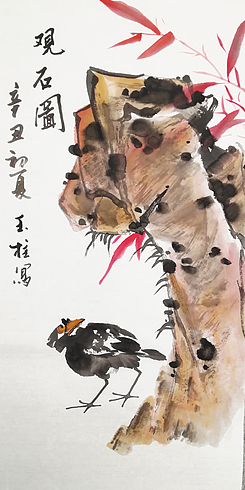 观石圖
辛丑初夏 玉柱寫